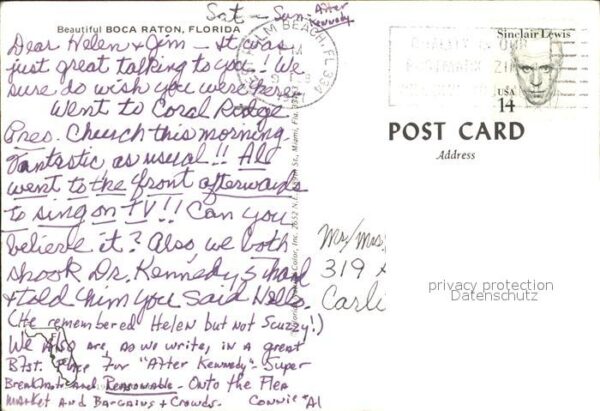 Sat - Sun - After
Kennedy
Beautiful BOCA RATON, FLORIDA
Dear Helen & Jim - It was
just great talking to you! We
sure do wish you were here.
Went to Coral Ridge
Pres. Church this morning
Fantastic as usual!! All
went to the front afterwards
to sing on TV!! Can you
believe it? Also, we both
shook Dr. Kennedy's hand
& told him you said Hello.
(He remembered Helen but not Scuzzy!)
We Also are, as we write, in a great
Bfst. Place for "After Kennedy" Super
Breakfast and Reasonable - Onto the Flea
Market And Bargains & Crowds. Connie & Al
PALM BEACH, FL 334
Sinclair Lewis
USA
14
POST CARD
Address
Mr/Mrs
319
Carli
privacy protection
Datenschutz